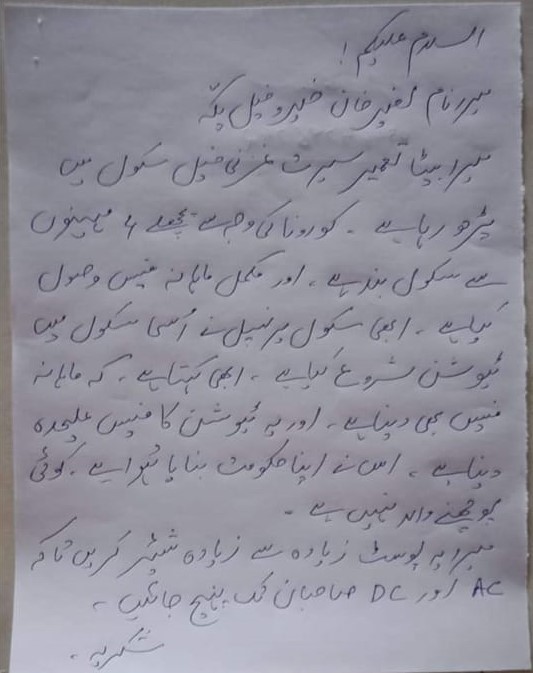 السلام علیکم!
میرا نام خان خیروخیل پکہ
میرا بیٹا تعمیر سیرت غزنی خیل سکول میں
پڑھ رہا ہے ۔ کورونا کی وجہ سے پچھلے 4 مہینوں
سے سکول بند ہے ۔ اور مکمل ماہانہ فیس وصول
کیا ہے ۔ ابھی سکول پرنسپل نے اُسی سکول میں
ٹیوشن شروع کیا ہے ۔ ابھی کہتا ہے ۔ کہ ماہانہ
فیس بھی دینا ہے ۔ اور یہ ٹیوشن کا فیس علیحدہ
دینا ہے ۔ اس نے اپنا حکومت بنایا ہُوا ہے ۔ کوئی
پوچھنے والا نہیں ہے ۔
میرا یہ پوسٹ زیادہ سے زیادہ شیئر کریں تاکہ
AC اور DC صاحبان تک پہنچ جائیں ۔
شکریہ ۔